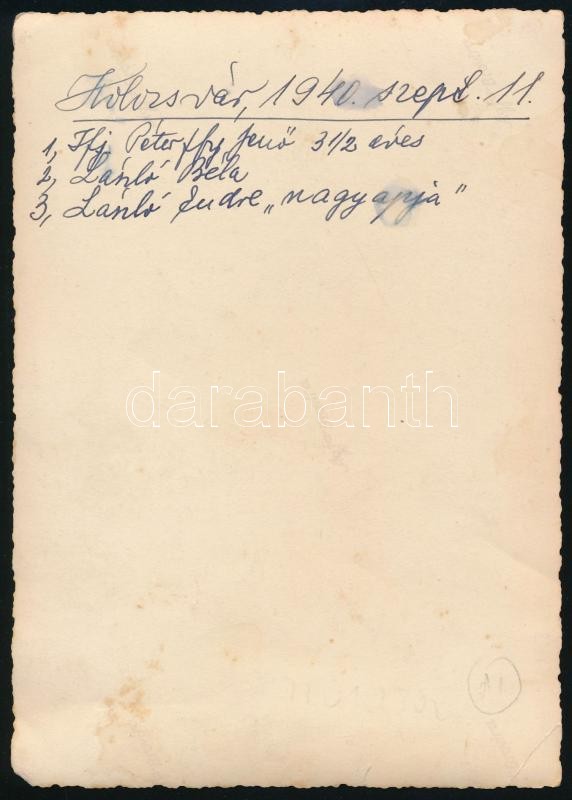 Kolozsvár, 1940. szept. 11.
1, Ifj. Péterffy Jenő 3 1/2 éves
2, László Béla
3, László Endre „nagyapja"
darabanth